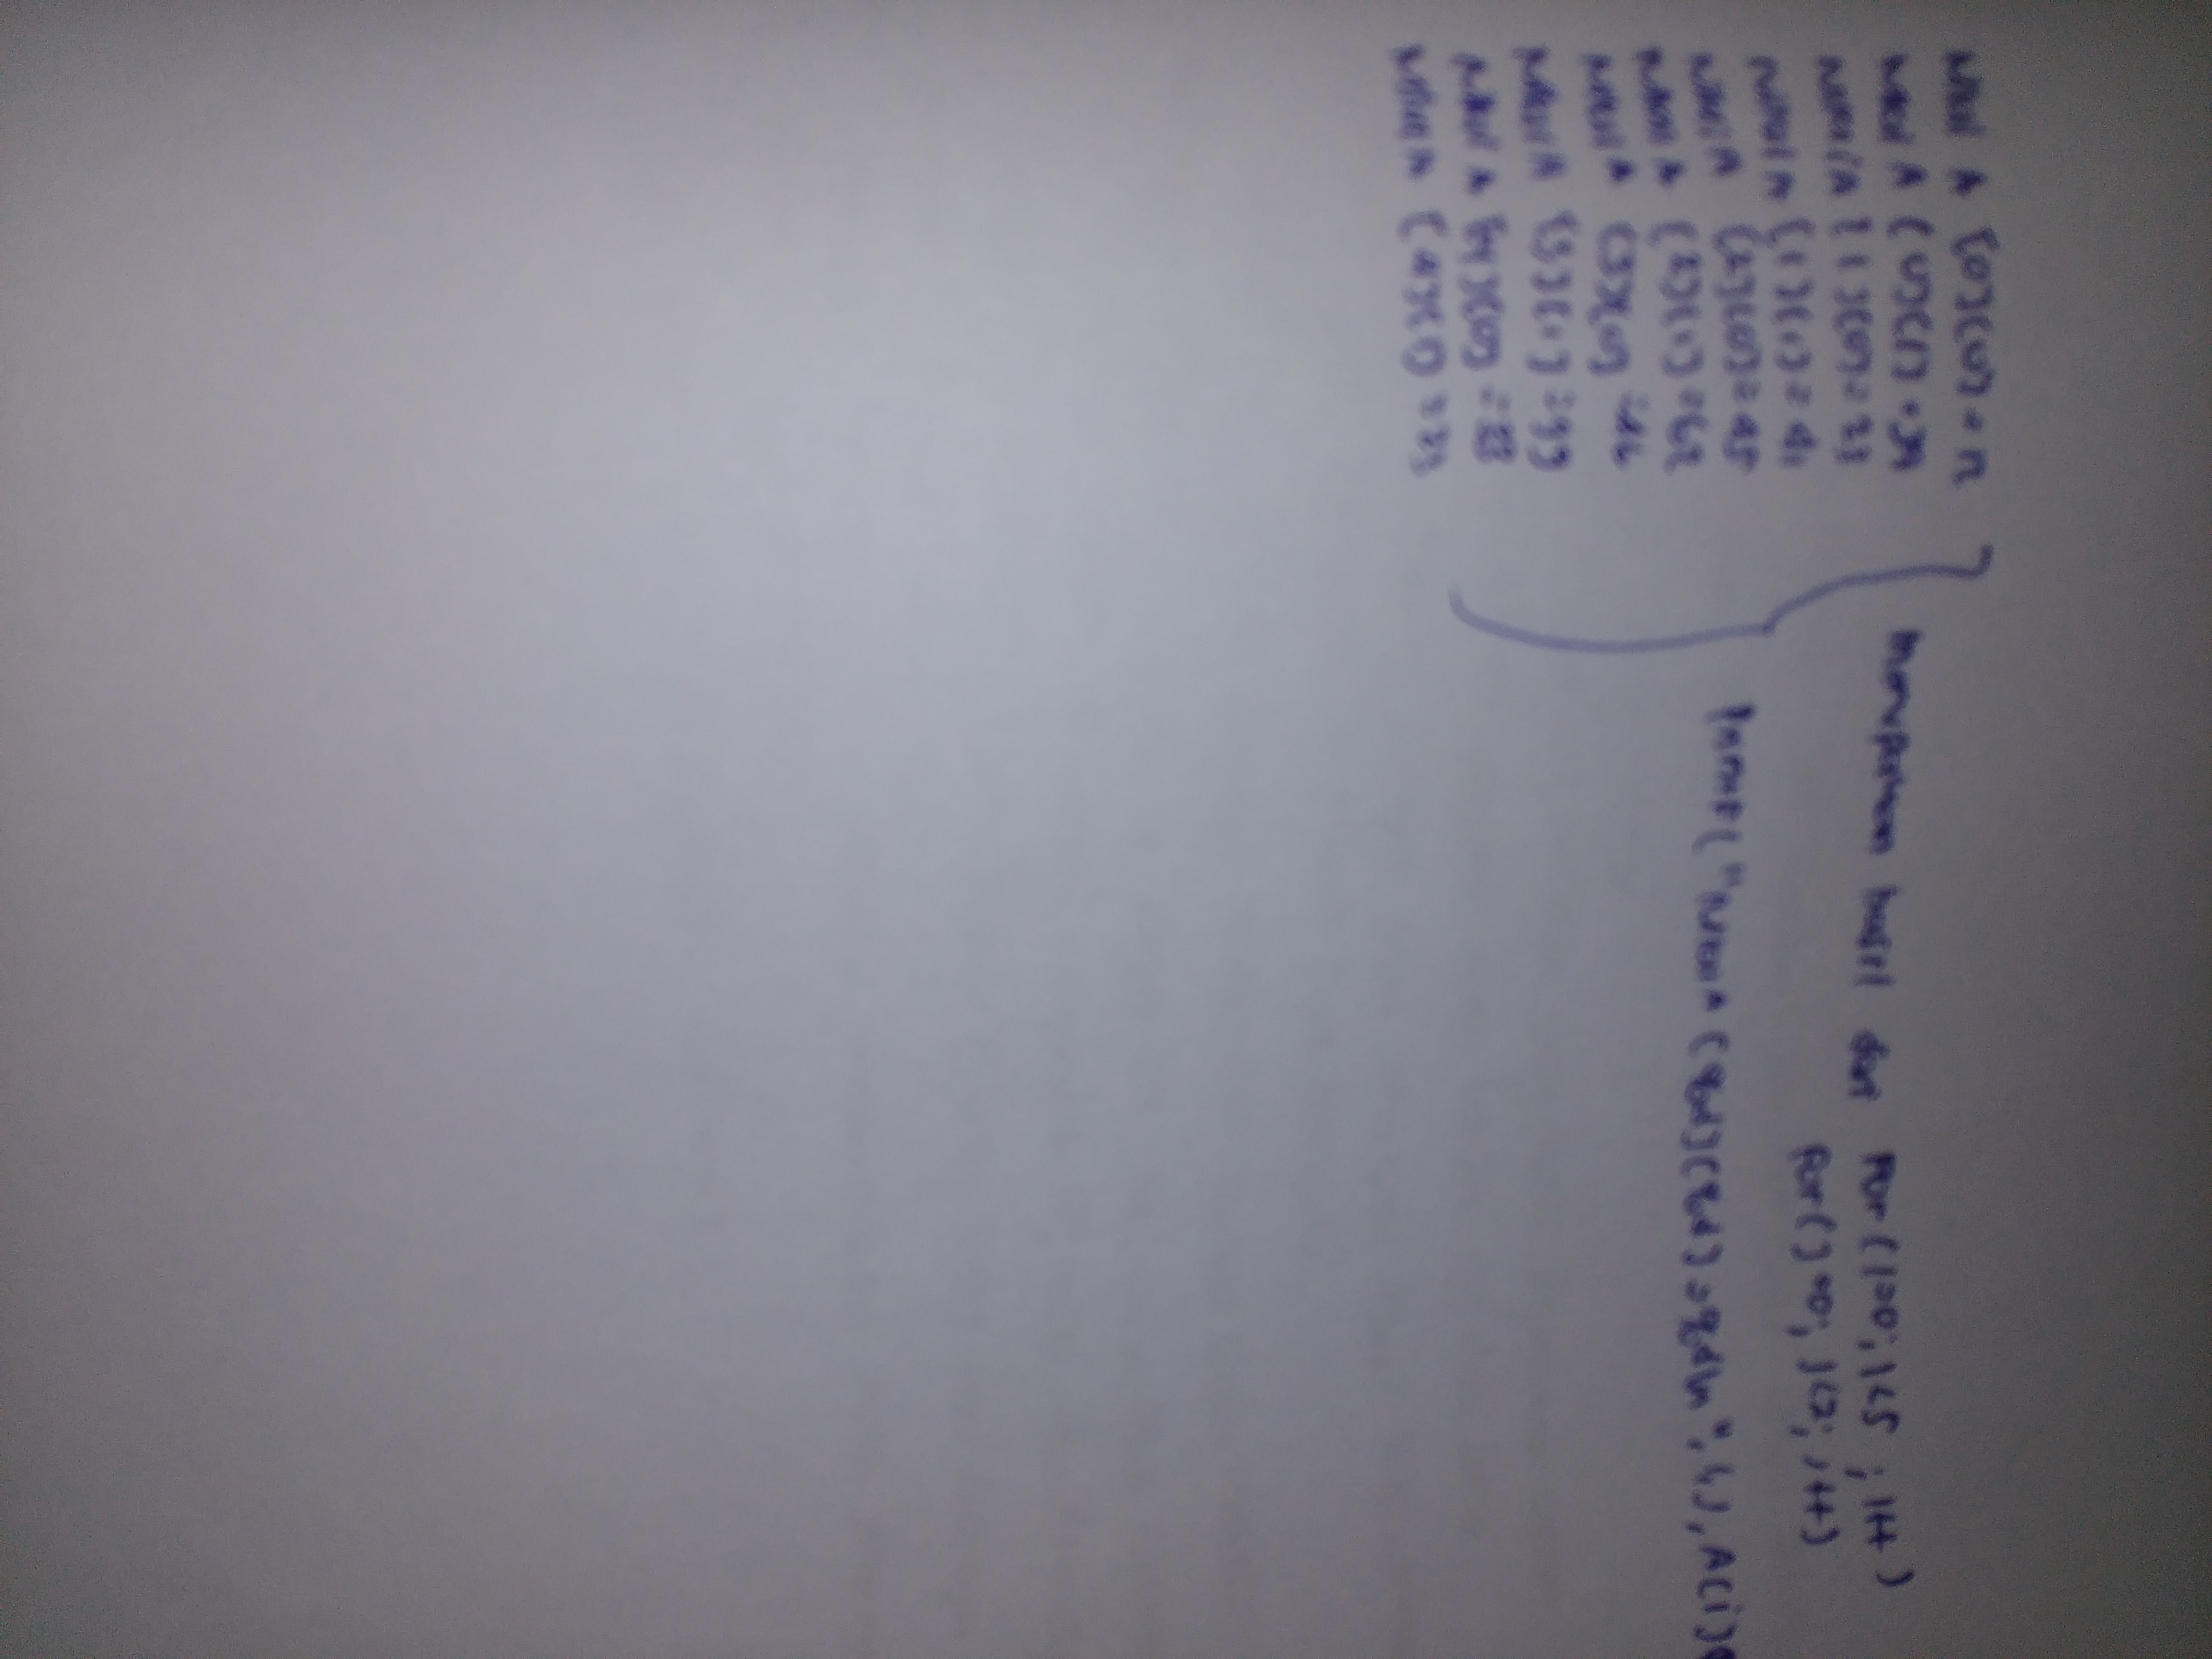 Nilai A [0][0] = 12
Nilai A [0][1] = 34
Nilai A [1][0] = 23
Nilai A [1][1] = 41
Nilai A [2][0] = 45
Nilai A [2][1] = 62
Nilai A [3][0] =
Nilai A [3][1] = 99
Nilai A [4][0] =
Nilai A [4][1] =
merupakan hasil dari for (i=0; i<5; i++)
for (j=0; j<2; j++)
printf("Nilai A [%d][%d] = %d\n", i,j, A[i][